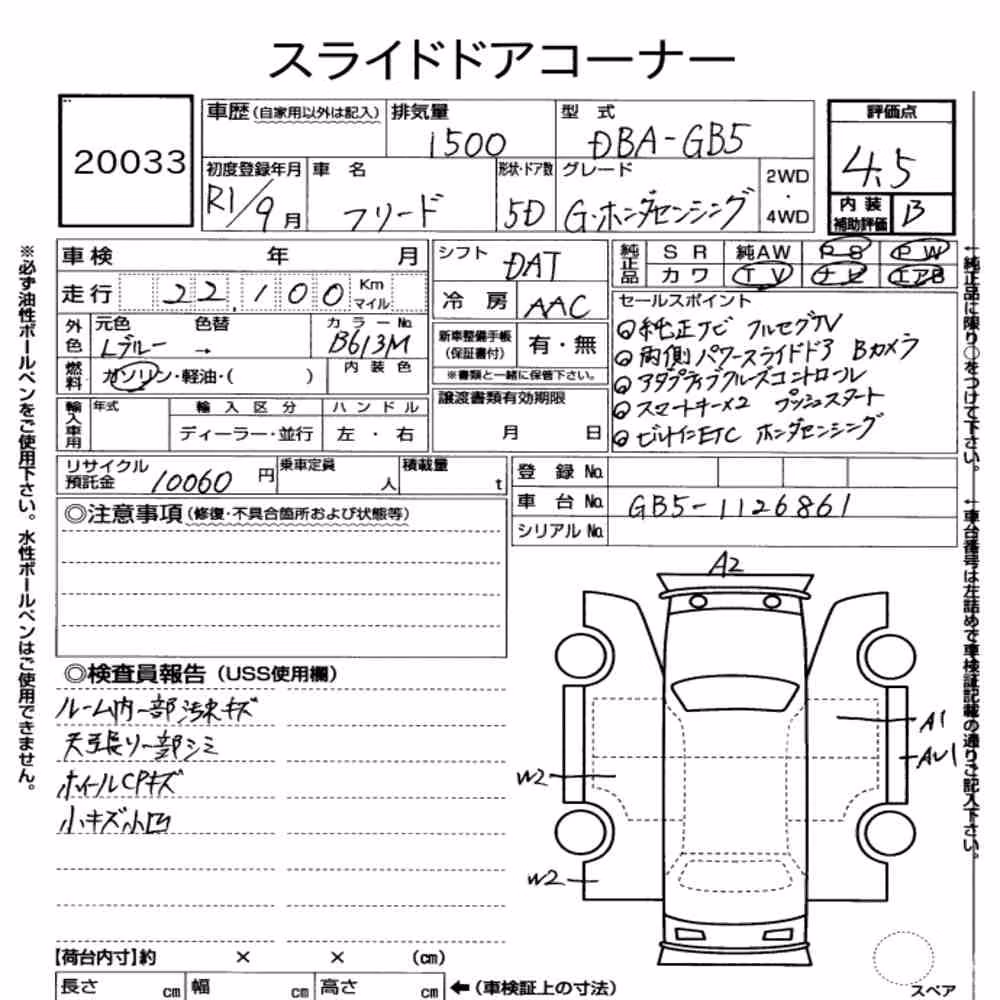 スライドドアコーナー
20033
車歴(自家用以外は記入) 排気量 1500 型式 DBA-GB5
評価点 4.5
初度登録年月 R1/9月 車名 フリード 形状・ドア数 5D グレード G・ホンダセンシング 2WD・4WD
内装補助評価 B
車検 年 月
走行 22,100 Km マイル
シフト DAT
冷房 AAC
純正品 SR 純AW PS PW
カワ TV ナビ エアB
外色 元色 Lブルー 色替 → カラーNo. B613M
燃料 ガソリン・軽油・( ) 内装色
新車整備手帳(保証書付) 有・無
※書類と一緒に保管下さい。
セールスポイント
◎純正ナビ フルセグTV
◎両側パワースライドドア Bカメラ
◎アダプティブクルーズコントロール
◎スマートキー×2 プッシュスタート
◎ビルトインETC ホンダセンシング
輸入車用 年式 輸入区分 ハンドル
ディーラー・並行 左・右
譲渡書類有効期限
月 日
リサイクル預託金 10060円 乗車定員 人 積載量 t
登録No.
車台No. GB5-1126861
シリアルNo.
◎注意事項(修復・不具合箇所および状態等)
◎検査員報告(USS使用欄)
ルーム内一部汚床キズ
天張り一部シミ
ホイールCPキズ
小キズ小凹
A2
A1
AU1
W2
W2
スペア
【荷台内寸】約 × × (cm)
長さ cm 幅 cm 高さ cm ←(車検証上の寸法)
※必ず油性ボールペンをご使用下さい。水性ボールペンはご使用できません。
←純正品に限り○をつけて下さい。
←車台番号は左詰めで車検証記載の通りご記入下さい。